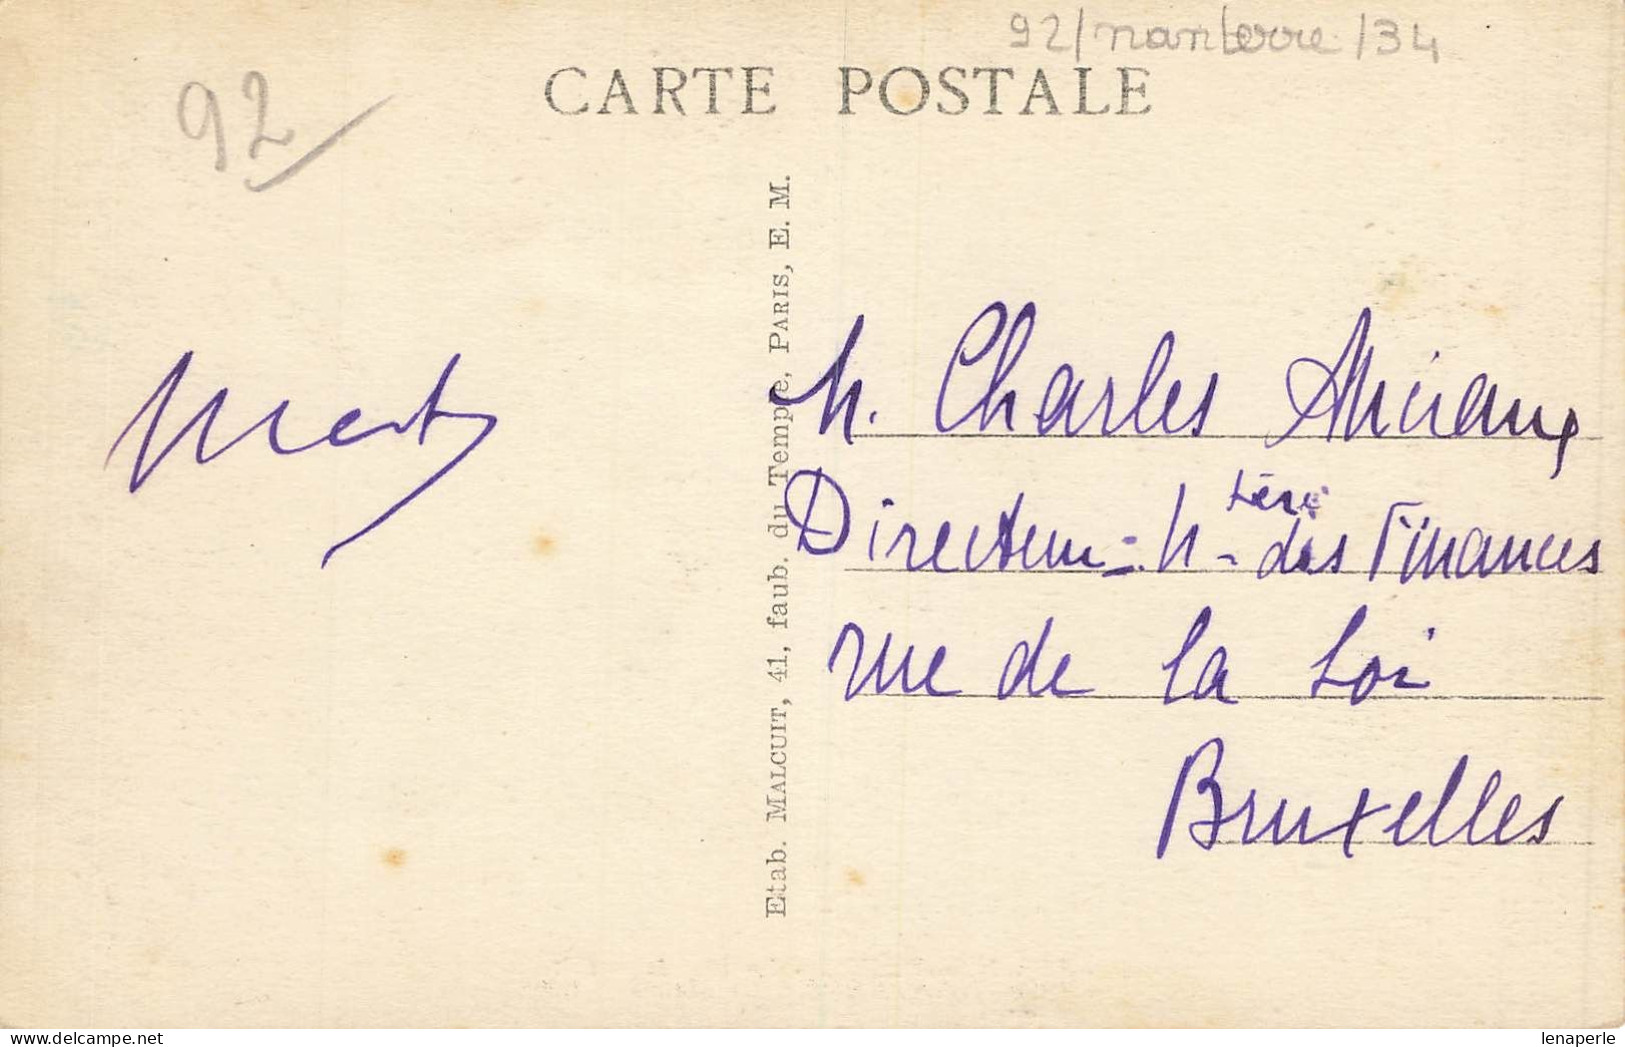 92/nanterre/34
CARTE POSTALE
92
Etab. MALCUIT, 41, faub. du Temple, PARIS, E. M.
M. Charles
Directeur - M-tère des Finances
rue de la Loi
Bruxelles
www.delcampe.net
lenaperle